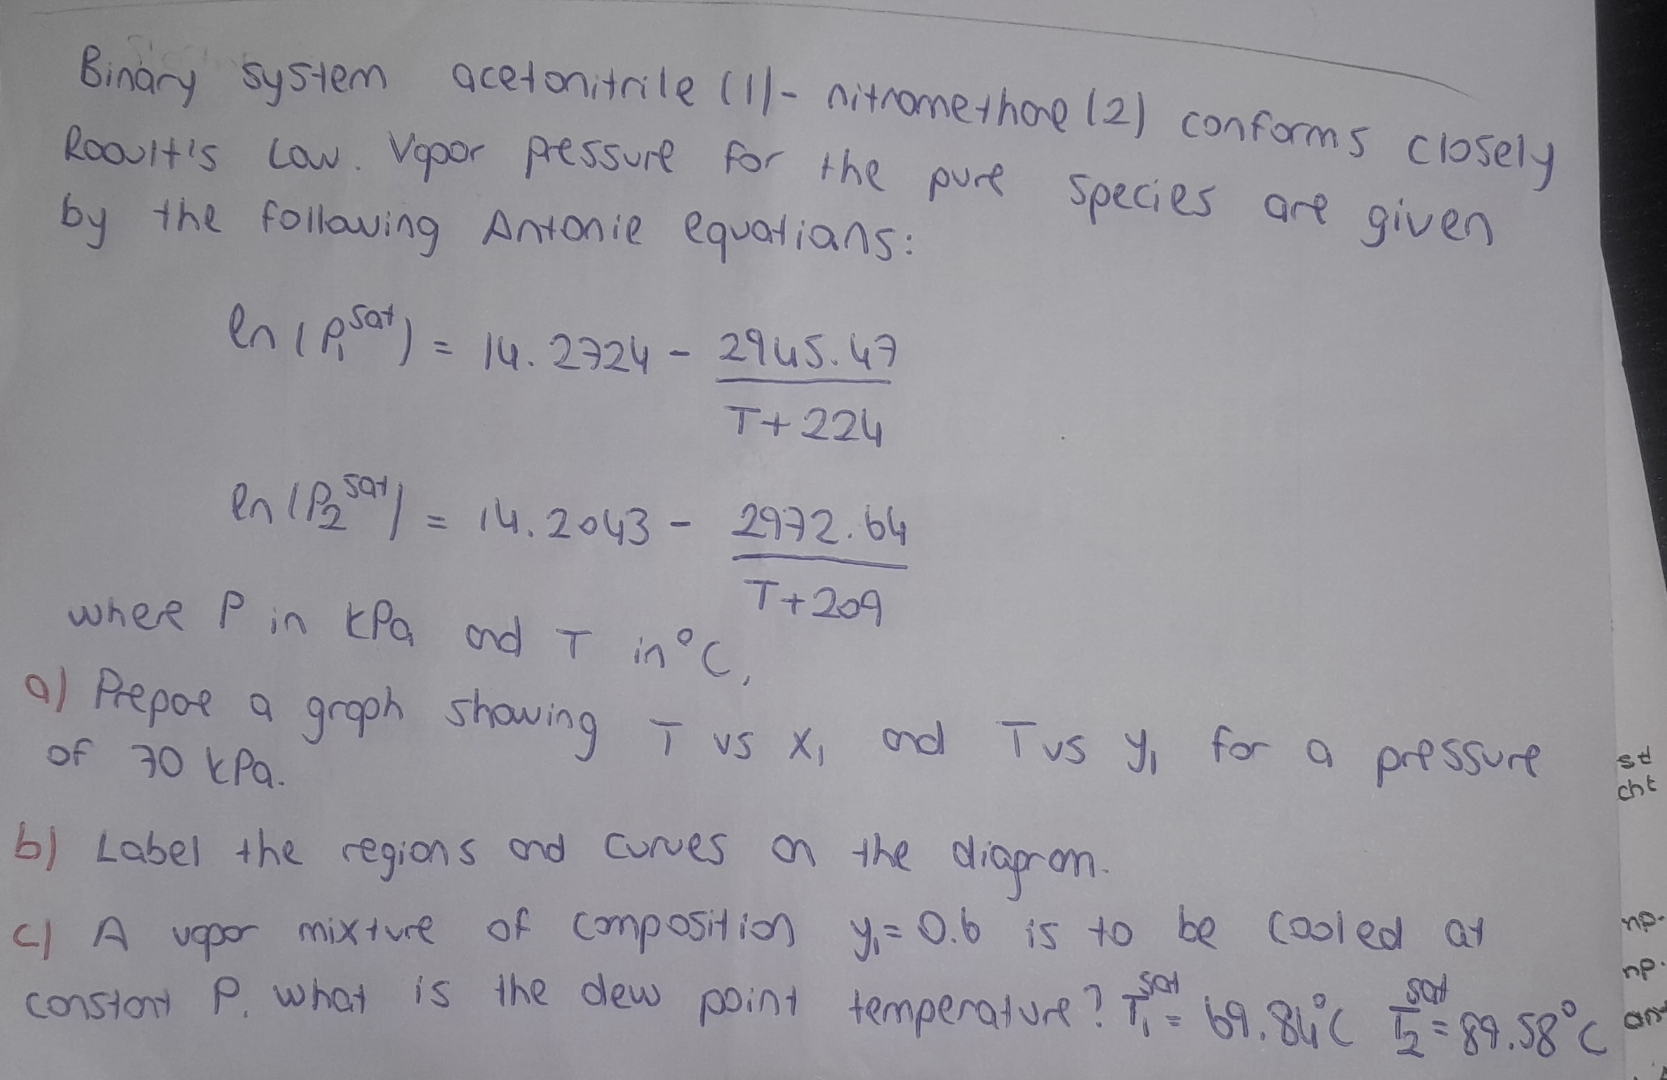 Binary system acetonitrile (1)- nitromethane (2) conforms closely
Raoult's Law. Vapor pressure for the pure species are given
by the following Antonie equatians:
ln(P₁^sat) = 14.2724 - 2945.47
T+224
ln(P₂^sat) = 14.2043 - 2972.64
T+209
where P in kPa and T in °C,
a) Prepare a graph showing T vs x₁ and T vs y₁ for a pressure
of 70 kPa.
b) Label the regions and curves on the diagram.
c) A vapor mixture of composition y₁= 0.6 is to be cooled at
constant P. what is the dew point temperature? T₁^sat = 69.84°C T₂^sat = 89.58°C
st
cht
np.
np.